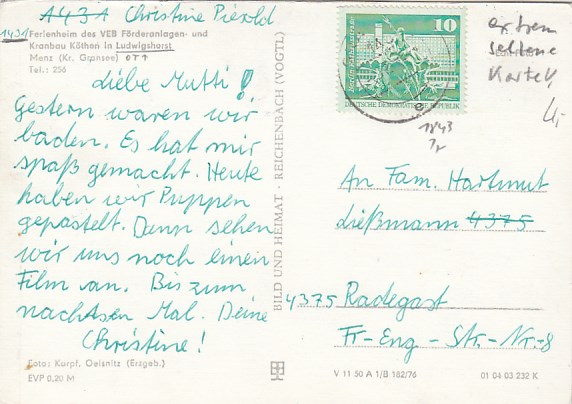 1431 Christine Pierold
Ferienheim des VEB Förderanlagen- und
Kranbau Köthen in Ludwigshorst
Menz (Kr. Gransee) OT 1
Tel.: 256
Liebe Mutti!
Gestern waren wir
baden. Es hat mir
spaß gemacht. Heute
haben wir Puppen
gepastelt. Dann sehen
wir uns noch einen
Film an. Bis zum
nachtsen Mal. Deine
Christine!
Foto: Karpf, Oelsnitz (Erzgeb.)
EVP 0,20 M
BILD UND HEIMAT · REICHENBACH (VOGTL)
10
DEUTSCHE DEMOKRATISCHE REPUBLIK
extrem
seltene
Karte!,
4,-
1843
An Fam. Hartmut
Dießmann 4375
4375 Radegast
Fr-Eng-Str.-Nr.-8
V 11 50 A 1/B 182/76
01 04 03 232 K